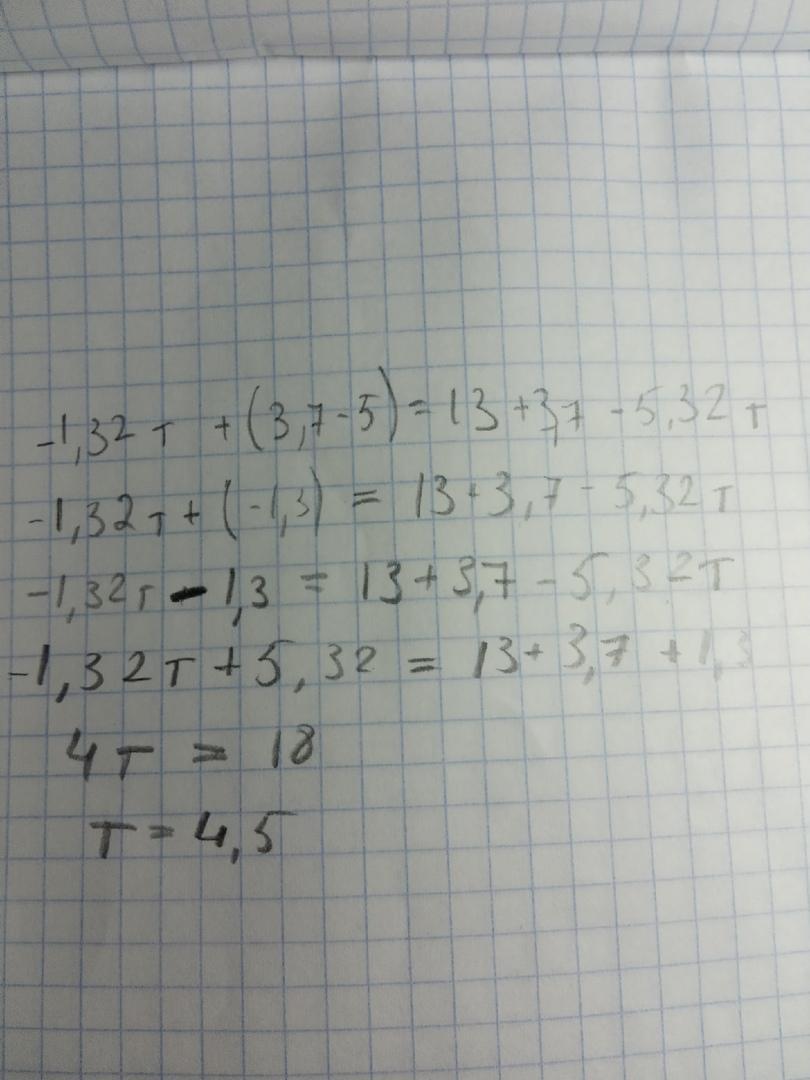 -1,32т + (3,7-5) = 13 + 3,7 - 5,32т
-1,32т + (-1,3) = 13 + 3,7 - 5,32т
-1,32т - 1,3 = 13 + 3,7 - 5,32т
-1,32т + 5,32 = 13 + 3,7 + 1,3
4т = 18
т = 4,5